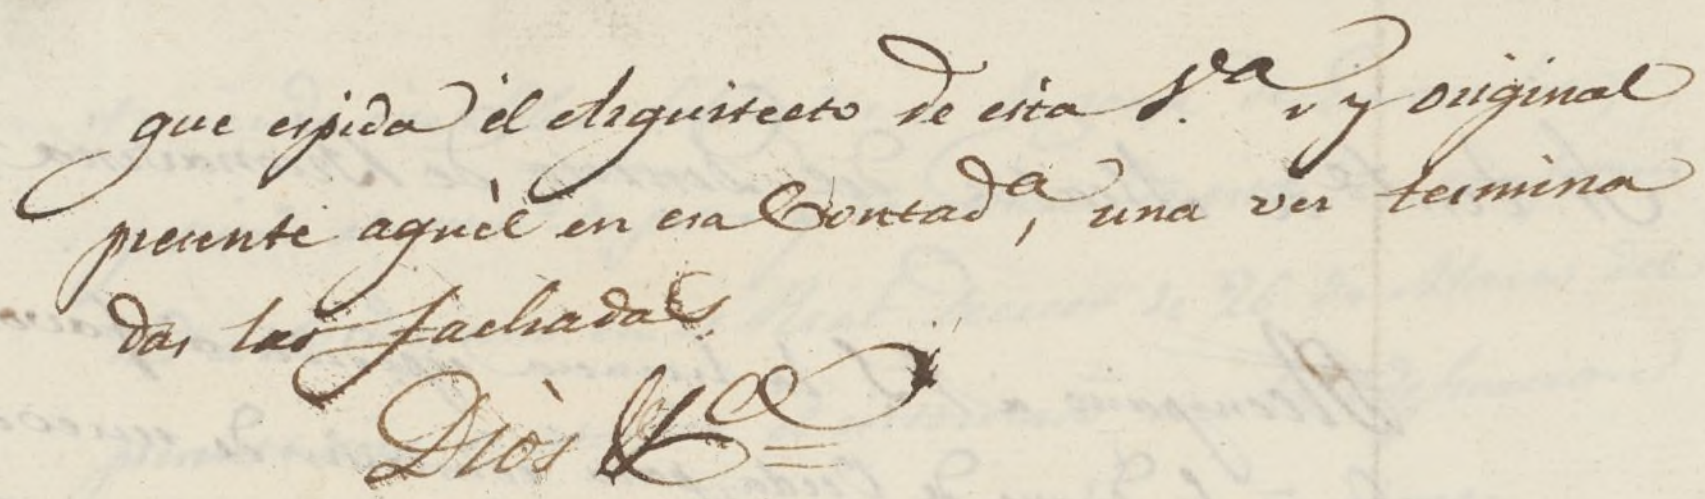 que espida el Arquitecto de esta V.ª y original
presente aquèl en esa Contad.ª, una ves termina
das las fachadas.
Diòs &.ª =